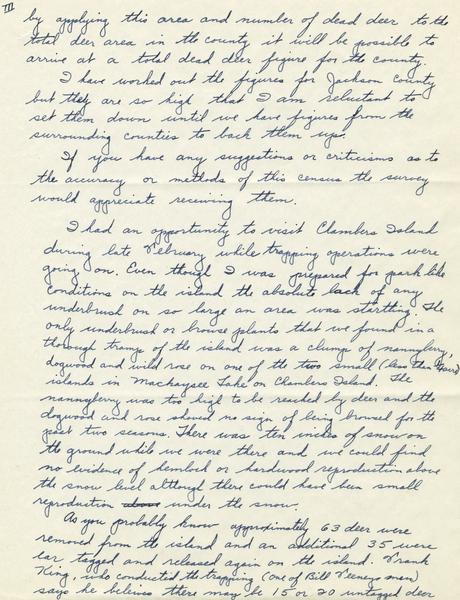 III
by applying this area and number of dead deer to the
total deer area in the county it will be possible to
arrive at a total dead deer figure for the county.
I have worked out the figures for Jackson County
but they are so high that I am reluctant to
set them down until we have figures from the
surrounding counties to back them up.
If you have any suggestions or criticisms as to
the accuracy or methods of this census the survey
would appreciate receiving them.
I had an opportunity to visit Chambers Island
during late February while trapping operations were
going on. Even though I was prepared for park like
conditions on the island the absolute lack of any
underbrush on so large an area was startling. The
only underbrush or browse plants that we found in a
thorough tramp of the island was a clump of nannyberry,
dogwood and wild rose on one of the two small (less than
islands in Mackaysee Lake on Chambers Island. The
nannyberry was too high to be reached by deer and the
dogwood and rose showed no sign of being browsed for the
past two seasons. There was ten inches of snow on
the ground while we were there and we could find
no evidence of hemlock or hardwood reproduction above
the snow level although there could have been small
reproduction above under the snow.
As you probably know approximately 63 deer were
removed from the island and an additional 35 were
ear tagged and released again on the island. Frank
King, who conducted the trapping (one of Bill Feeneys men)
says he believes there may be 15 or 20 untagged deer